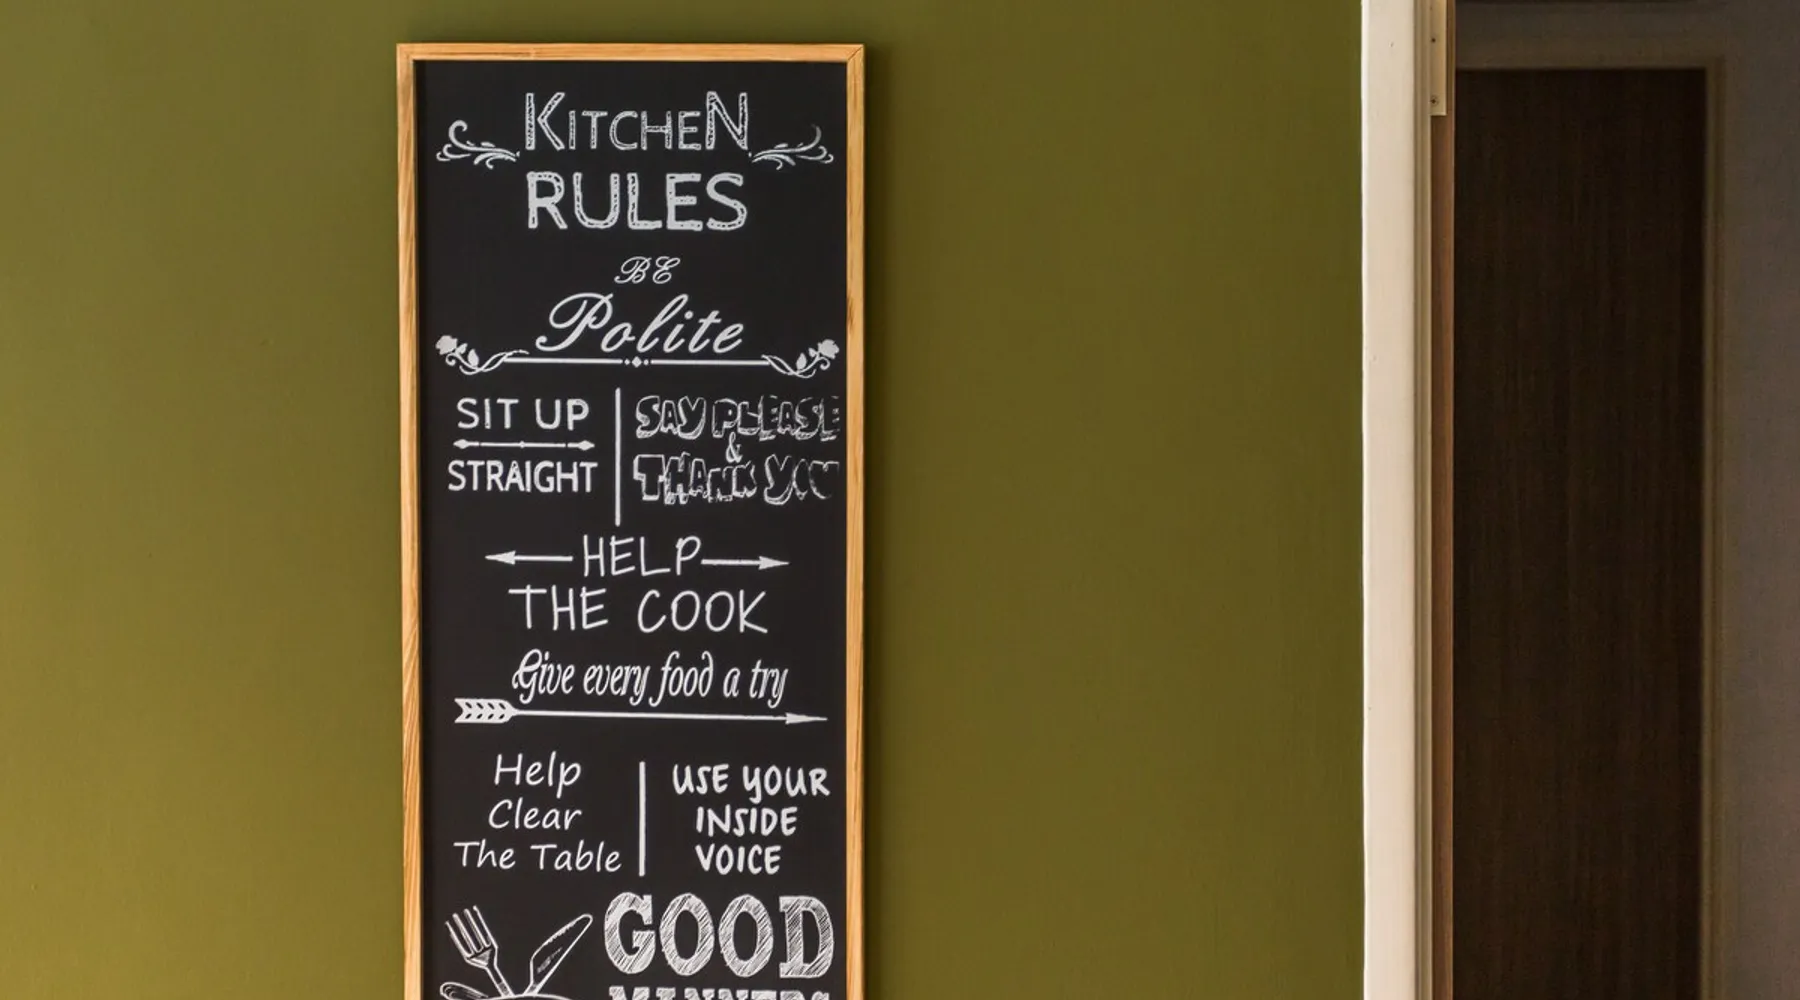 KITCHEN
RULES
BE
Polite
SIT UP
STRAIGHT
SAY PLEASE
&
THANK YOU
HELP
THE COOK
Give every food a try
Help
Clear
The Table
USE YOUR
INSIDE
VOICE
GOOD
MANNERS